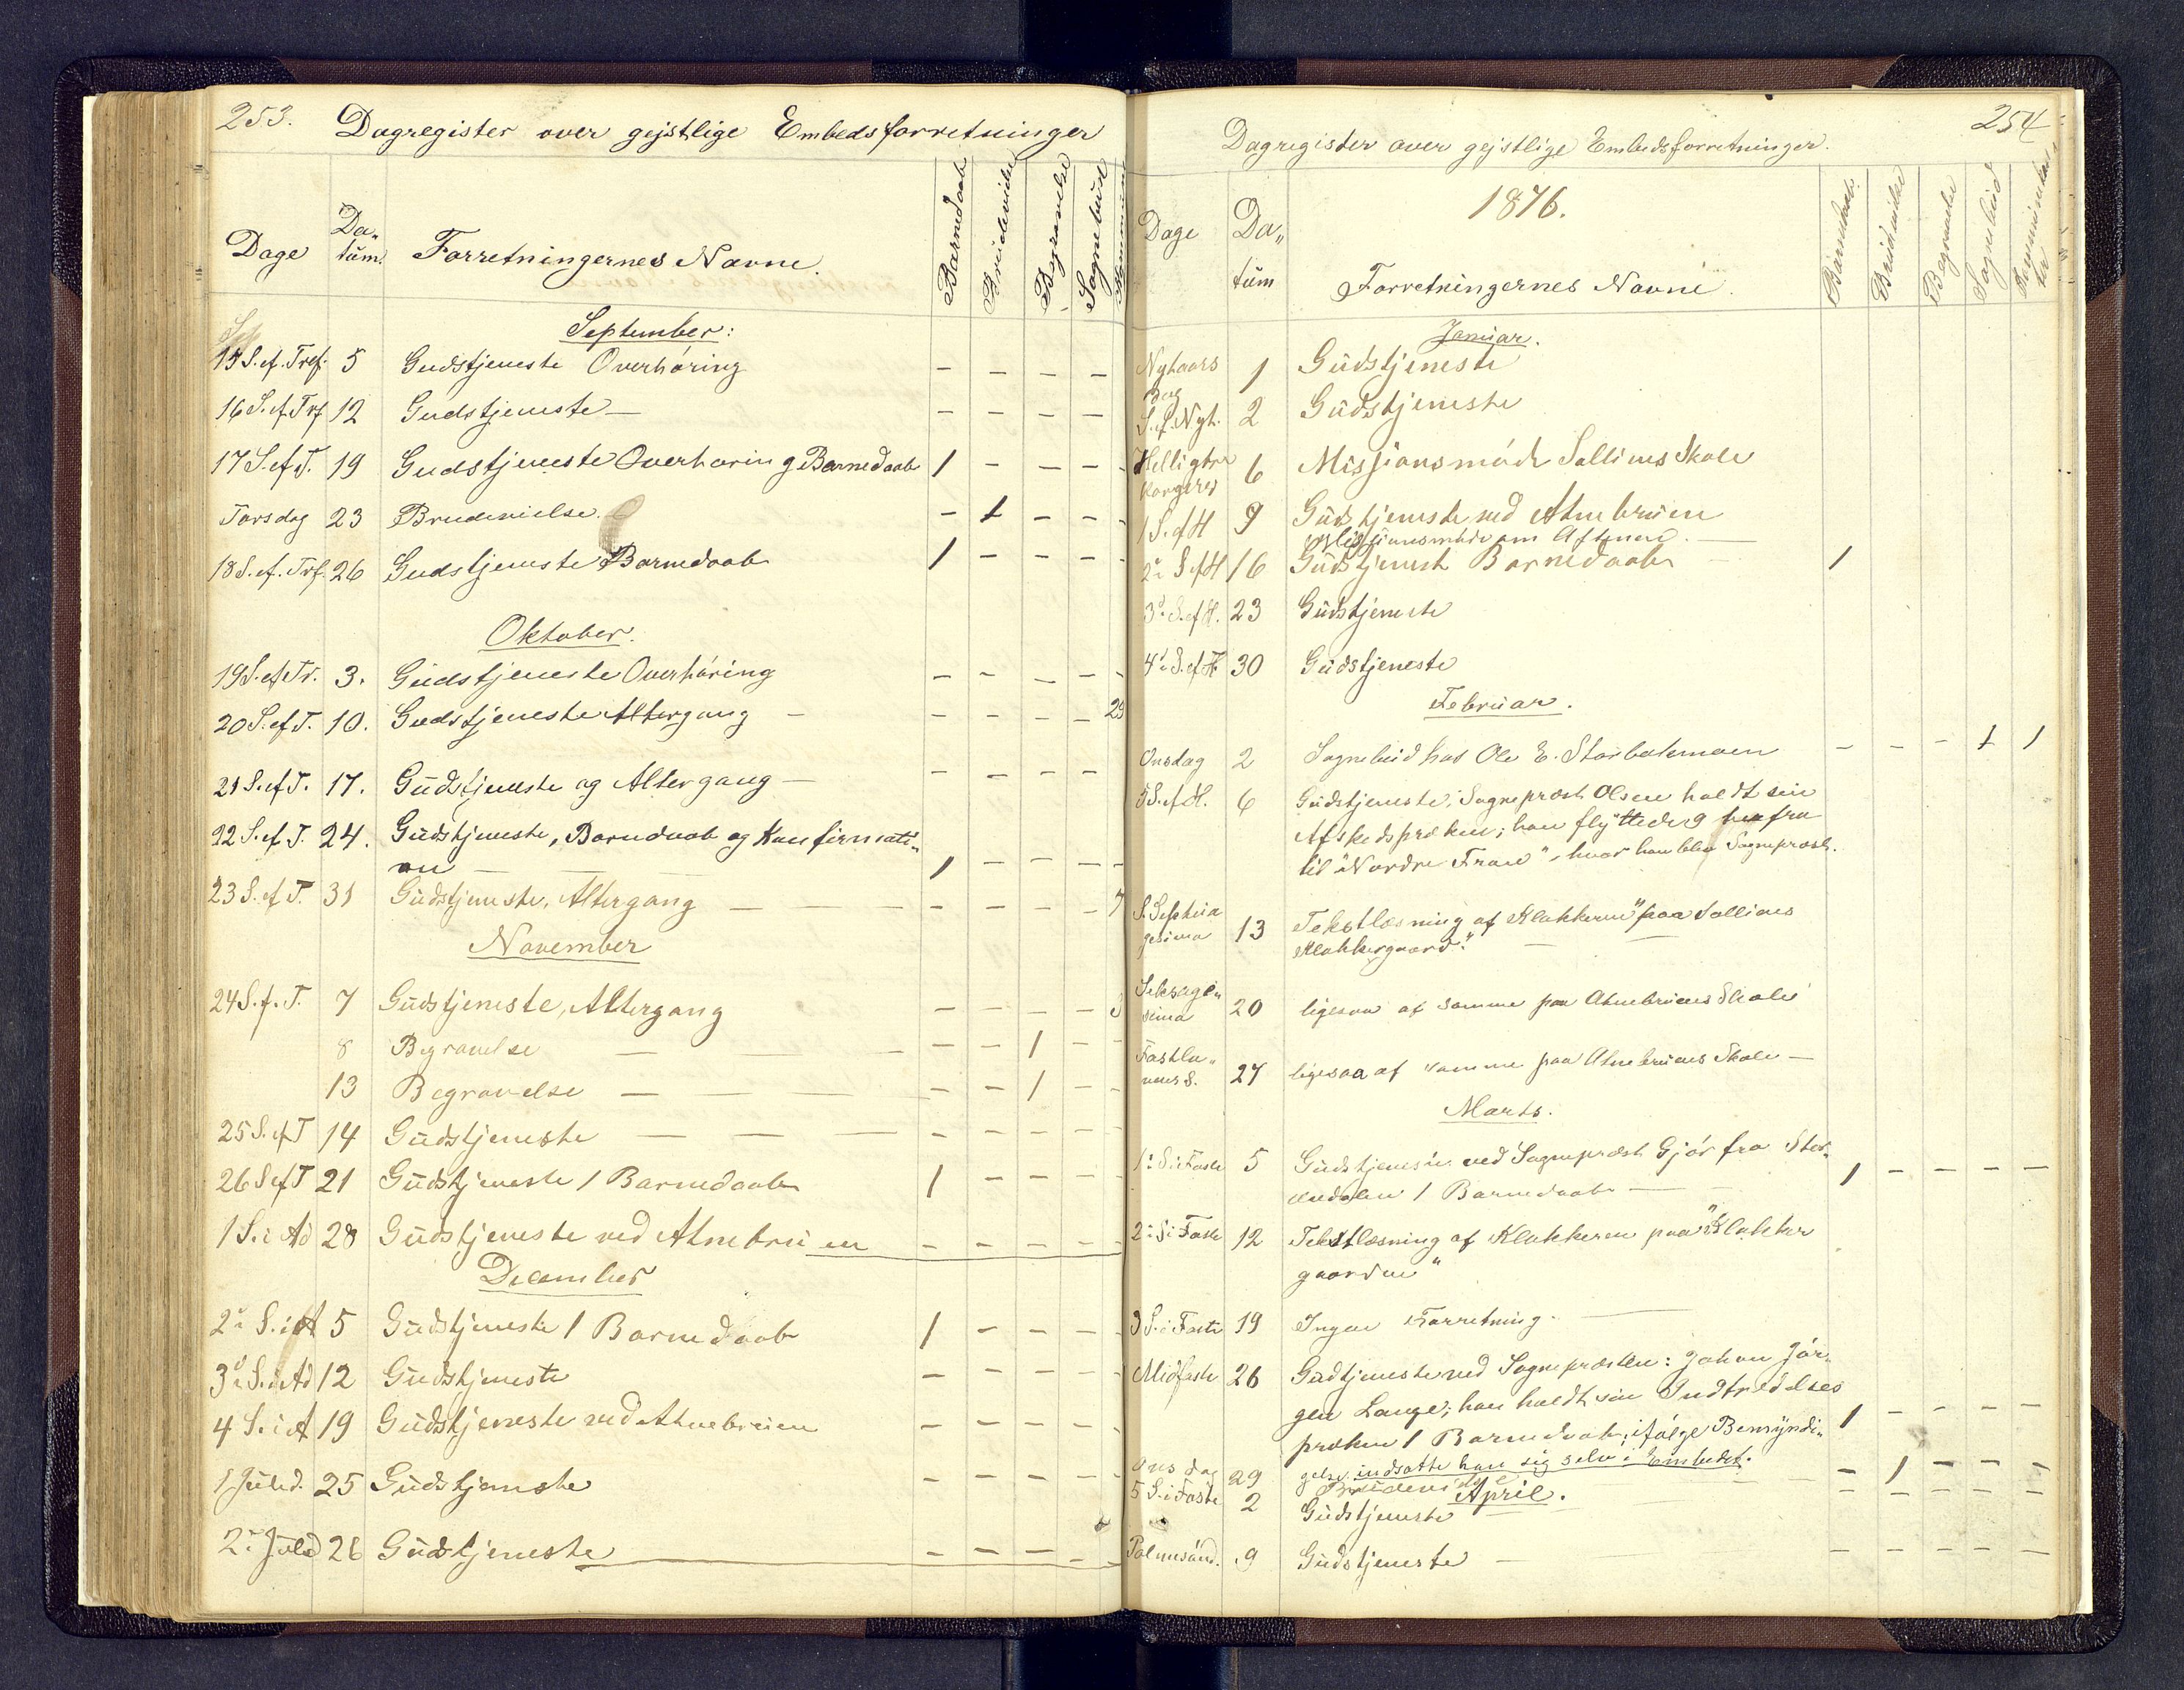 253.
Dagregister over gejstlige Embedsforretninger
Dage Da„ tum. Forretningernes Navne. Barnedaab Brudevielse Begravelse Sognebud
September:
15 S. ef. Tref. 5 Gudstjeneste Overhøring - - - -
16 S. ef. Trf 12 Gudstjeneste - - - - -
17 S. ef. T. 19 Gudstjeneste Overhøring Barnedaab 1 - - - -
Torsdag 23 Brudevielse. - 1 - - -
18 S. ef. Trf. 26 Gudstjeneste Barnedaab 1 - - - -
Oktober.
19 S. ef Tr. 3. Gudstjeneste Overhøring - - - - -
20 S. ef T. 10. Gudstjeneste Altergang - - - - - 29
21 S. ef T. 17. Gudstjeneste og Altergang - - - - -
22 S. ef T. 24. Gudstjeneste, Barnedaab og Konfirmati„
on - - 1 - - - -
23 S. ef T. 31 Gudstjeneste, Altergang - - - - - 7
November
24 S. f. T. 7 Gudstjeneste, Altergang - - - - 3
8 Begravelse - - - 1 - -
13 Begravelse - - - 1 - -
25 S. ef T 14 Gudstjeneste - - - - - -
26 S ef T 21 Gudstjeneste 1 Barnedaab 1 - - - -
1 S. i Ad 28 Gudstjeneste ved Atnebruen - - - - -
December
2n S. i A 5 Gudstjeneste 1 Barnedaab 1 - - - -
3d S. i Ad 12 Gudstjeneste - - - -
4 S. i A 19 Gudstjeneste ved Atnebruen - - - - -
1 Juled. 25 Gudstjeneste - - - -
2n Juled 26 Gudstjeneste - - - - -
254
Dagregister over gejstlige Embedsforretninger.
1876.
Dage Da„ tum Forretningernes Navne. Barnedaab Brudevielse Begravelse Sognebud Kommunikanter
Januar.
Nytaars dag 1 Gudstjeneste
S. f. Nyt. 2 Gudstjeneste
Helligtre Konger 6 Missionsmøde Solliens Skole
1 S. ef H 9 Gudstjeneste ved Atnebruen
Missionsmøde om Aftenen. -
2n S. ef H 16 Gudstjenest Barnedaab - 1
3d S. ef H. 23 Gudstjeneste
4d S. ef H 30 Gudstjeneste
Februar.
Onsdag 2 Sognebud hos Ole E. Storbækmoen - - - 1 1
5 S. ef H. 6 Gudstjeneste; Sogneprest Olsen holdt sin
Afskedspræken; han flyttede 9 fra
til "Nordre Fron", hvor han blev Sogneprest.
S. Septua gesima 13 Tekstlæsning af Klokkeren "paa Solliens
Klokkergaard." - -
Seksage„ sima 20 ligesaa af samme paa Atnebruens Skole
Fastela„ vens S. 27 ligesaa af samme paa Atnebruens Skole -
Marts.
1n S. i Faste 5 Gudstjeneste ved Sogneprest Gjør fra Stor„
elvdalen 1 Barnedaab - - 1 - - - -
2n S. i Faste 12 Tekstlæsning af Klokkeren paa "Klokker
gaarden"
3 S. i Faste 19 Ingen Forretning. -
Midfaste 26 Gudtjeneste ved Sognepresten: Johan Jør„
gen Lange; han holdt sin Indtrædelses
præken 1 Barnedaab; ifølge Bemyndi„ 1 - - - -
gelse indsatte han sig selv i Embedet.
Onsdag 29 Brudevielse - 1 - - -
April.
5 S. i Faste 2 Gudstjeneste - - - - -
Palmesønd. 9 Gudstjeneste - - - - - -